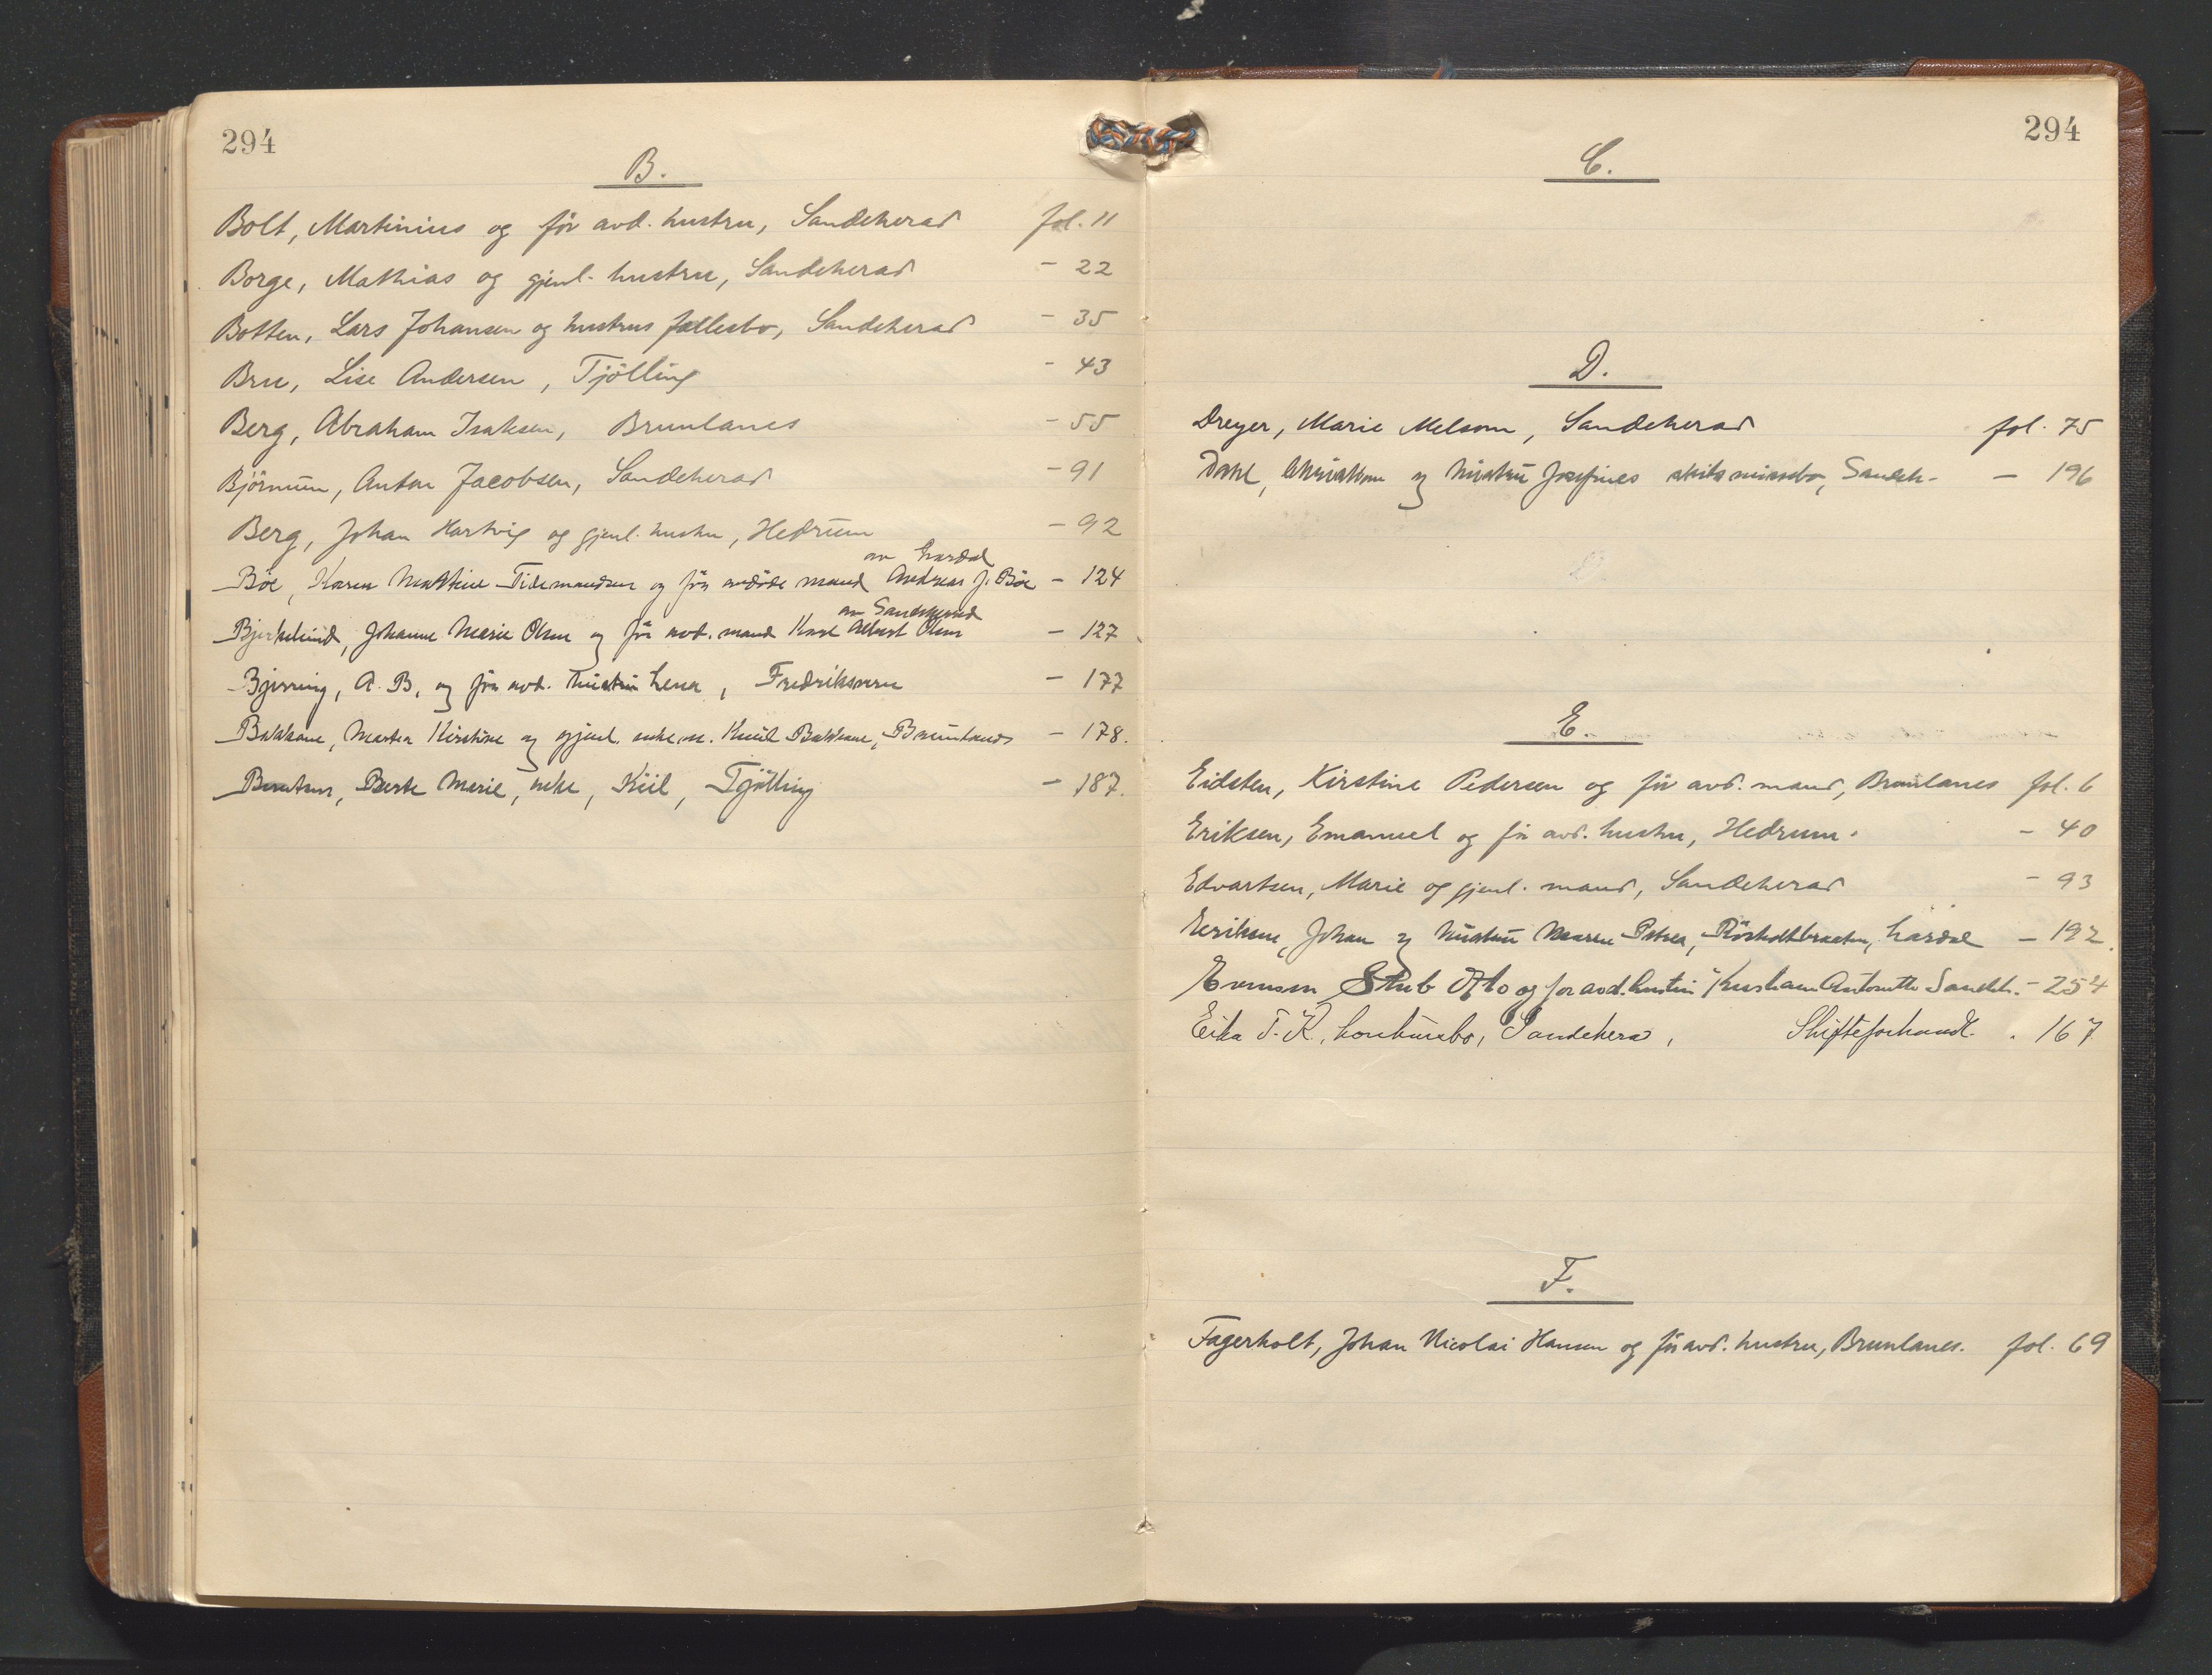 294
B.
Bolt, Martinius og før avd. hustru, Sandeherad fol. 11
Borge, Mathias og gjenl. hustru, Sandeherad - 22
Botten, Lars Johansen og hustrus fællesbo, Sandeherad - 35
Bru, Lise Andersen, Tjölling - 43
Berg, Abraham Isaksen, Brunlanes - 55
Björnum, Anton Jacobsen, Sandeherad - 91
Berg, Johan Hartvig og gjenl. hustru, Hedrum - 92
av Lardal
Böe, Karen Mathine Tidemandsen og før avdöde mand Andreas J. Böe - 124
av Sandeherred
Bjerkelund, Johanne Marie Olsen og før avd. mand Karl Albert Olsen - 127
Bjerring, A. B. og før avd. hustru Lena, Fredriksvern - 177
Bakkane, Marten Kirstine og gjenl. enkem. Knut Bakkane, Brunlanes - 178.
Berntsen, Berte Marie, enke, Kiil, Tjölling - 187.
294
C.
D.
Dreyer, Marie Melsom, Sandeherad fol. 75
Dahl, Christian og hustru Josefines skilsmissebo, Sandeh. - 196
E.
Eidsten, Kirstine Pedersen og før avd. mand, Brunlanes fol. 6
Eriksen, Emanuel og før avd. hustru, Hedrum. - 40
Edvartsen, Marie og gjenl. mand, Sandeherad - 93
Eriksen, Johan og hustru Maren Petrea, Röisholtbraaten, Lardal - 192.
Evensen Stub Otto og for avd. hustru Antonette Sandeh. - 254
Eika T. K., konkursbo, Sandehera, Skifteforhandl. . 167
F.
Fagerholt, Johan Nicolai Hansen og før avd. hustru, Brunlanes. fol. 69